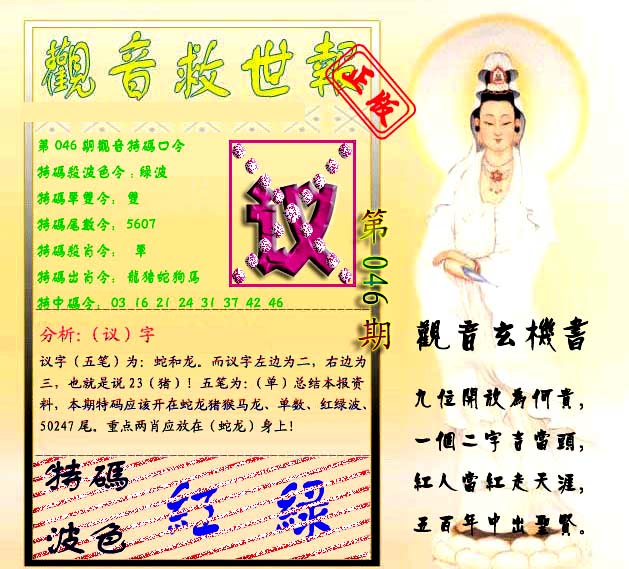 觀音救世報
正版
第046期觀音特碼口令
特碼殺波色令：綠波
特碼單雙令： 雙
特碼尾數令： 5607
特碼殺肖令： 單
特碼出肖令： 龍猪蛇狗馬
特中碼令： 03 16 21 24 31 37 42 46
议
第046期
分析:（议）字
议字（五笔）为：蛇和龙。而议字左边为二，右边为
三，也就是说23（猪）！五笔为：（单）总结本报资
料，本期特码应该开在蛇龙猪猴马龙、单数、红绿波、
50247尾。重点两肖应放在（蛇龙）身上！
特碼
波色
紅 綠
觀音玄機書
九位開放為何貴，
一個二字吉當頭，
紅人當紅走天涯，
五百年中出聖賢。